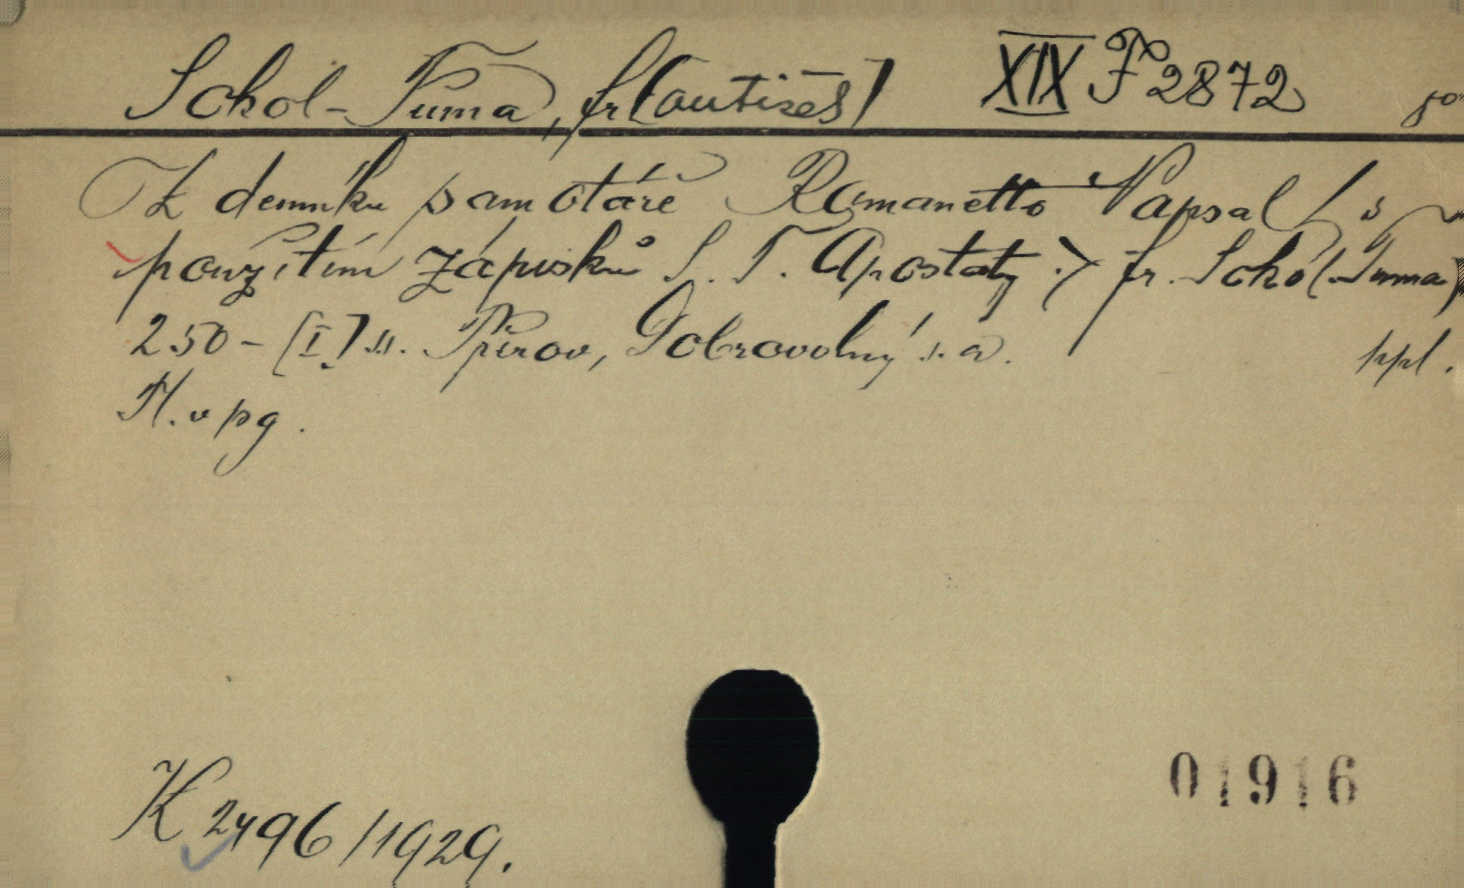 Sokol-Tůma, Fr[antišek] XIX F 2872
Z denníku samotáře Romanetto Napsal (s
použitím zápisků S. T. Apostaty.) Fr. Sokol-Tůma)
250-[I] s. Přerov, Dobrovolný s. a. ppl.
M. 8 pg.
K 2496/1929.
01916